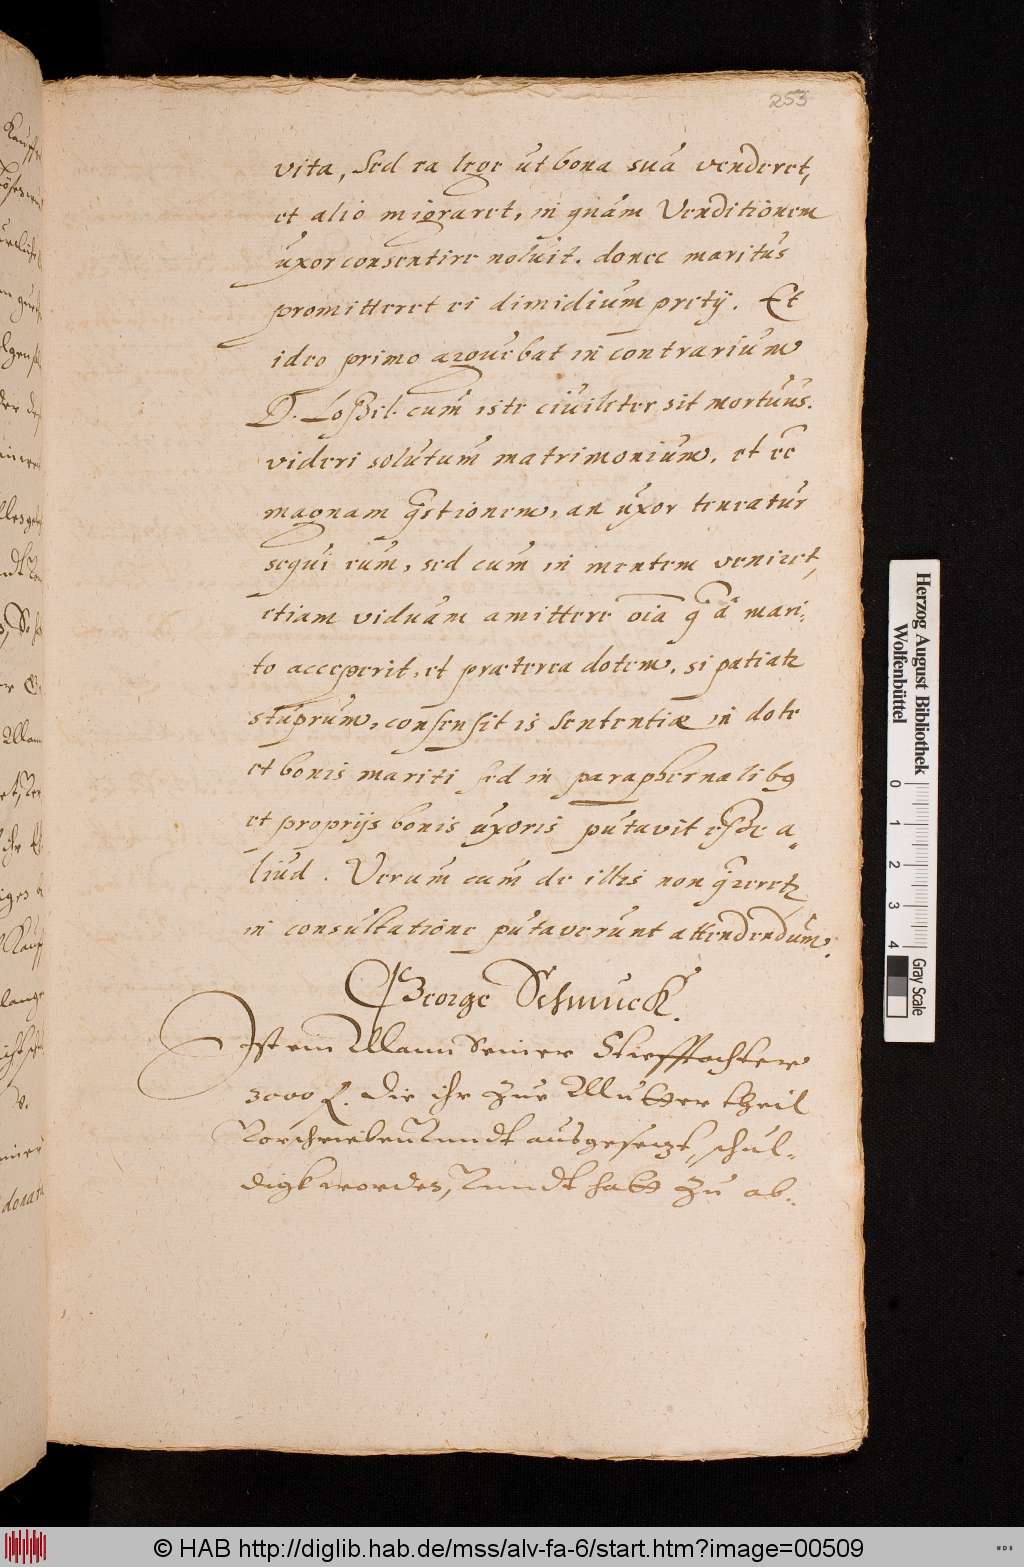 253
vita, sed ea lege ut bona sua venderet,
et alio migraret, in quam Venditionem
uxor consentire noluit. donec maritus
promitteret ei dimidium pretij. Et
ideo primo arguebat in contrarium
D. Loßel. cum iste civiliter sit mortuus.
videri solutum matrimonium, et eē
magnam q̄stionem, an uxor teneatur
sequi eum, sed cum in mentem veniret,
etiam viduam amittere oīa q̄ ā mari-
to acceperit, et præterea dotem, si patiatr
stuprum, consensit is sententiæ in dote
et bonis mariti sed in paraphernalibq
et proprijs bonis uxoris putavit esse a-
liud. Verum cum de illis non q̄reretr
in consultatione putaverunt attendendum.
George Schmuck.
Ist ein Mann seiner Stiefftochter
3000 f. die ihr zue Mutter theil
Vorschrieben Vnndt ausgesetzt, schul-
digk worden, Vnndt hatt zu ab-
Herzog August Bibliothek
Wolfenbüttel
0 1 2 3 4
Gray Scale
© HAB http://diglib.hab.de/mss/alv-fa-6/start.htm?image=00509